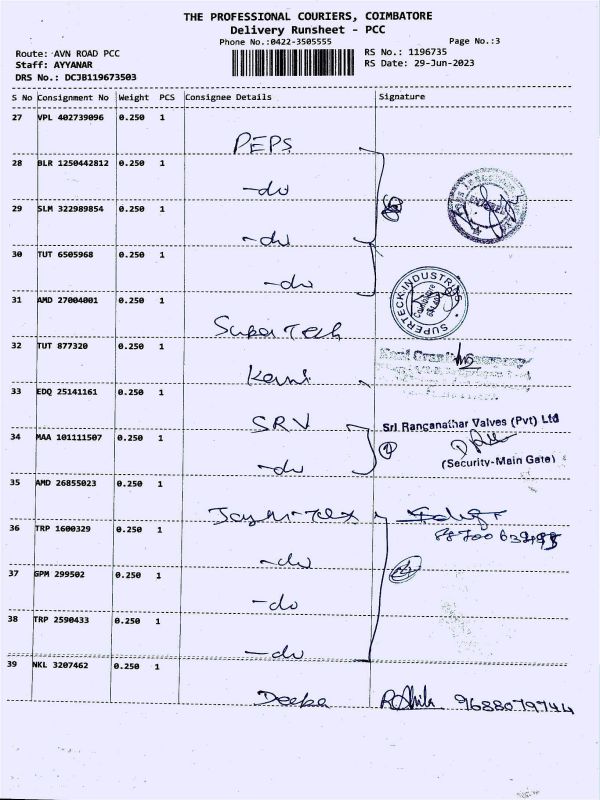 THE PROFESSIONAL COURIERS, COIMBATORE
Delivery Runsheet - PCC
Phone No.:0422-3505555
Page No.:3
Route: AVN ROAD PCC
RS No.: 1196735
Staff: AYYANAR
RS Date: 29-Jun-2023
DRS No.: DCJB119673503
S No Consignment No Weight PCS Consignee Details Signature
27 VPL 402739096 0.250 1
PEPS
28 BLR 1250442812 0.250 1
-do
29 SLM 322989854 0.250 1
-do
30 TUT 6505968 0.250 1
-do
SUPERTECH INDUSTRIES
31 AMD 27004001 0.250 1
Super Tech
32 TUT 877320 0.250 1
33 EDQ 25141161 0.250 1
SRV
Sri Ranganathar Valves (Pvt) Ltd
34 MAA 101111507 0.250 1
-do
(Security-Main Gate)
35 AMD 26855023 0.250 1
36 TRP 1600329 0.250 1
-do
37 GPM 299502 0.250 1
-do
38 TRP 2590433 0.250 1
-do
39 NKL 3207462 0.250 1
Deepa 9688079744